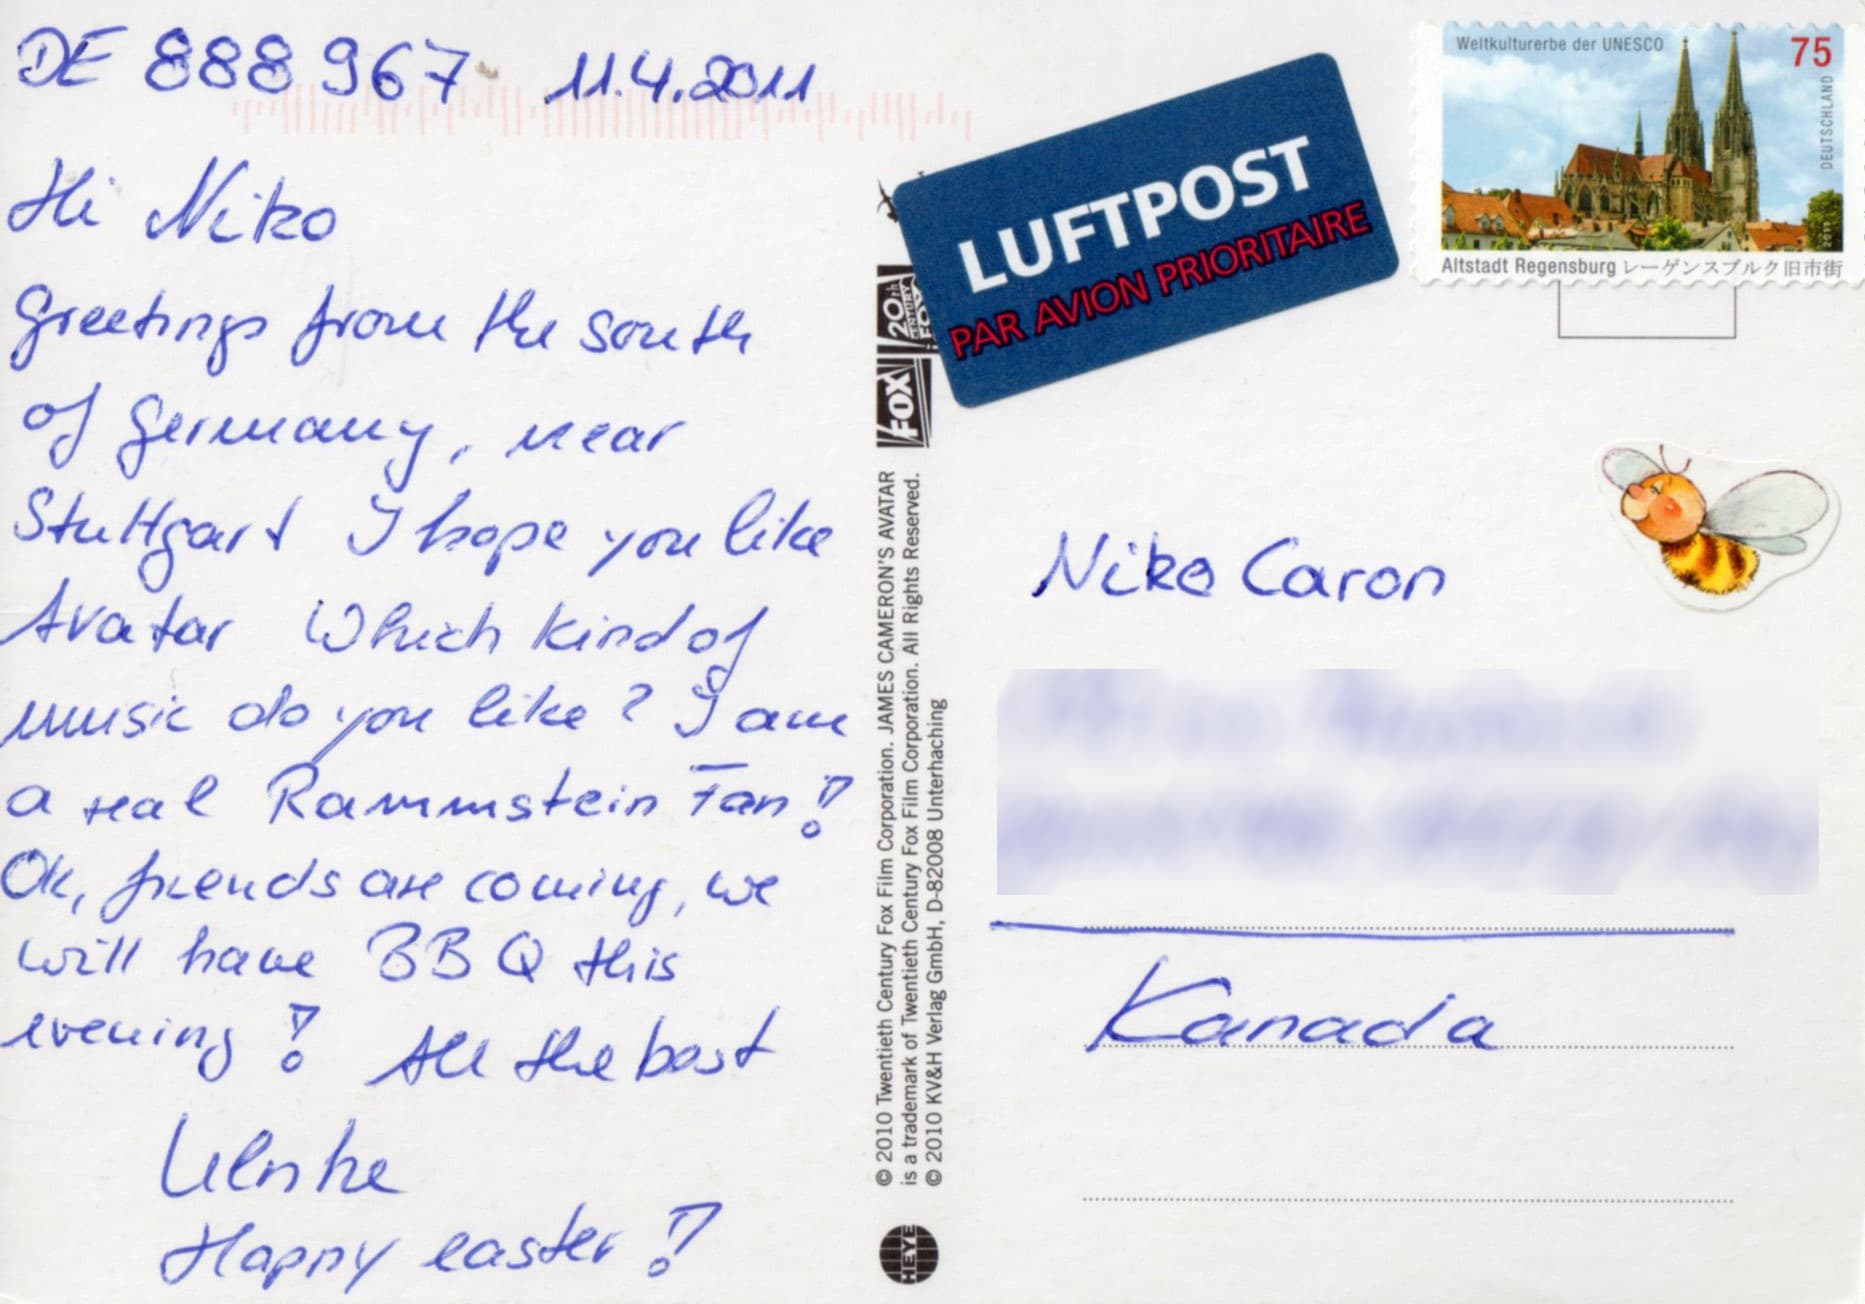 DE 888 967 11.4.2011
Hi Niko
Greetings from the south
of Germany, near
Stuttgart I hope you like
Avatar Which kind of
music do you like? I am
a real Rammstein Fan!
Ok, friends are coming, we
will have BBQ this
evening! All the best
Ulrike
Happy easter!
20th
CENTURY
FOX
FOX
© 2010 Twentieth Century Fox Film Corporation. JAMES CAMERON'S AVATAR
is a trademark of Twentieth Century Fox Film Corporation. All Rights Reserved.
© 2010 KV&H Verlag GmbH, D-82008 Unterhaching
HEYE
LUFTPOST
PAR AVION PRIORITAIRE
Weltkulturerbe der UNESCO 75
DEUTSCHLAND
2011
Altstadt Regensburg レーゲンスブルク旧市街
Niko Caron
Kanada